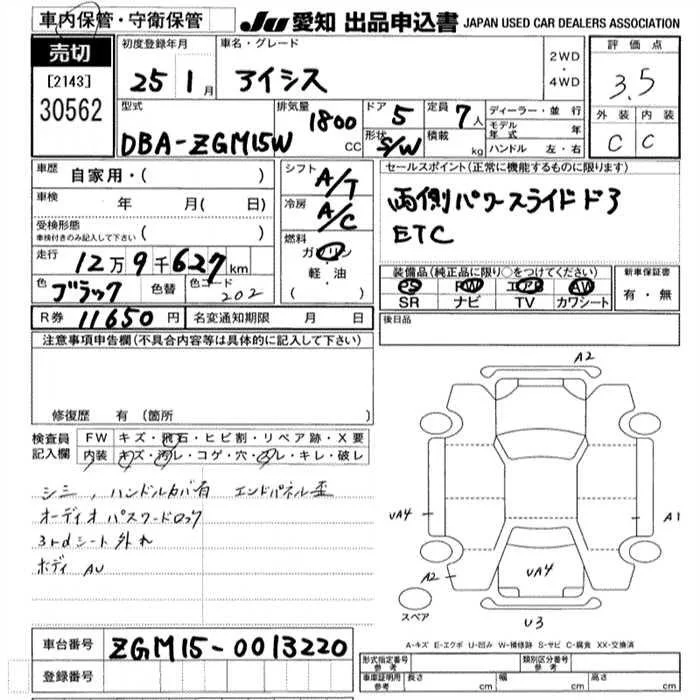 車内保管・守衛保管 JU 愛知 出品申込書 JAPAN USED CAR DEALERS ASSOCIATION
売切
[2143]
30562
初度登録年月 25 1 月
車名・グレード アイシス
2WD
・
4WD
評価点
3.5
外装 内装
C C
型式 DBA-ZGM15W
排気量 1800 CC
ドア 5
定員 7 人
形状 S/W
積載 kg
ディーラー・並行
モデル年式 年
ハンドル 左・右
車歴 自家用・( )
車検 年 月 ( 日)
受検形態
車検付きのみ記入して下さい ( )
走行 12万9千627km
色 ブラック 色替 色コード 202
シフト A/T
冷房 A/C
燃料 ガソリン
・
軽油
( )
セールスポイント(正常に機能するものに限ります)
両側パワースライドドア
ETC
装備品(純正品に限り○をつけてください)
PS PW エアB AW
SR ナビ TV カワシート
新車保証書
有・無
R券 11650 円 名変通知期限 月 日
後日品
注意事項申告欄(不具合内容等は具体的に記入して下さい)
修復歴 有 (箇所 )
検査員記入欄
FW キズ・飛石・ヒビ割・リペア跡・X要
内装 キズ・汚レ・コゲ・穴・スレ・キレ・破レ
シミ,ハンドルカバ有 エンドパネル歪
オーディオ パスワードロック
3rdシート外れ
ボディ AU
A2
UA4
A1
A2
UA4
U3
スペア
A-キズ E-エクボ U-凹み W-補修跡 S-サビ C-腐食 XX-交換済
車台番号 ZGM15-0013220
登録番号
形式指定番号 参考
類別区分番号 参考
車庫証明用 参考 長さ cm 幅 cm 高さ cm